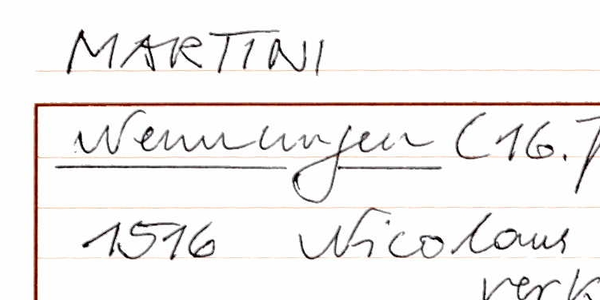 MARTINI
Wennungen (16.
1516 Nicolaus
verk